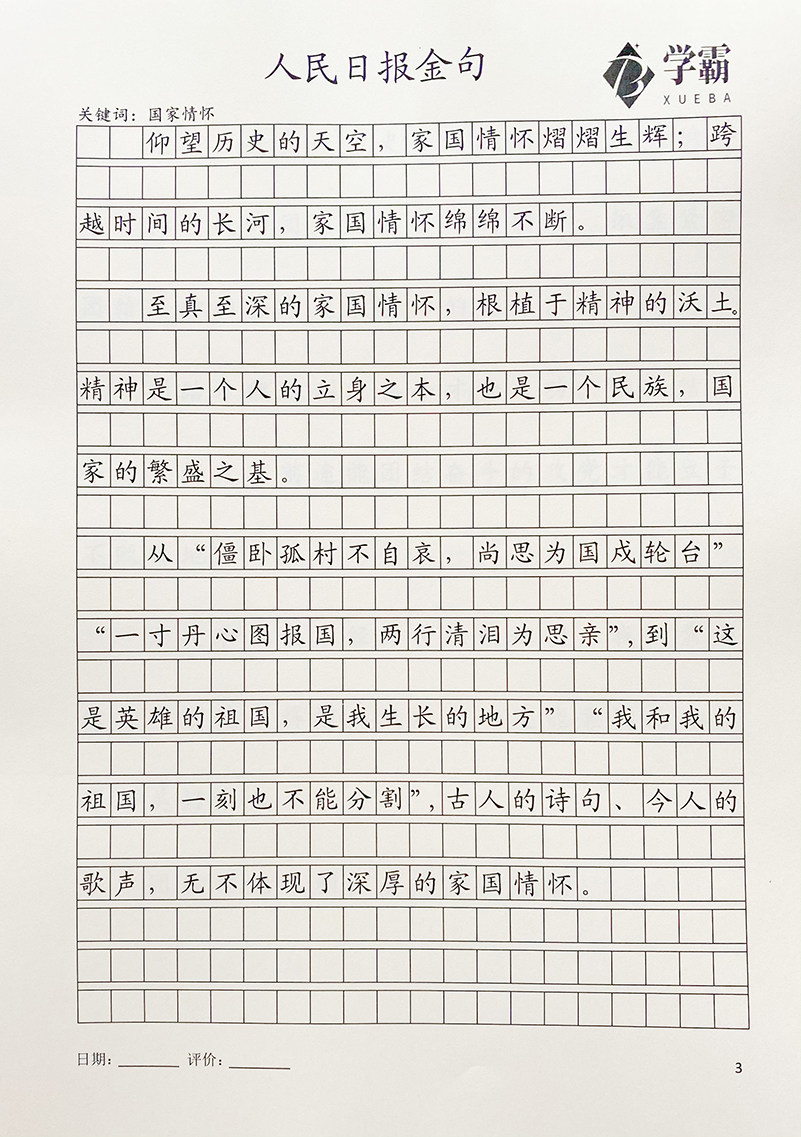 人民日报金句
学霸
XUEBA
关键词：国家情怀
仰望历史的天空，家国情怀熠熠生辉；跨
越时间的长河，家国情怀绵绵不断。
至真至深的家国情怀，根植于精神的沃土。
精神是一个人的立身之本，也是一个民族，国
家的繁盛之基。
从“僵卧孤村不自哀，尚思为国戍轮台”
“一寸丹心图报国，两行清泪为思亲”，到“这
是英雄的祖国，是我生长的地方”“我和我的
祖国，一刻也不能分割”，古人的诗句、今人的
歌声，无不体现了深厚的家国情怀。
日期：________ 评价：________
3